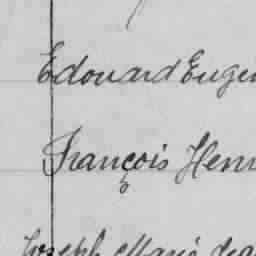 Edouard Eugè
François Henr
Joseph Marie Jea